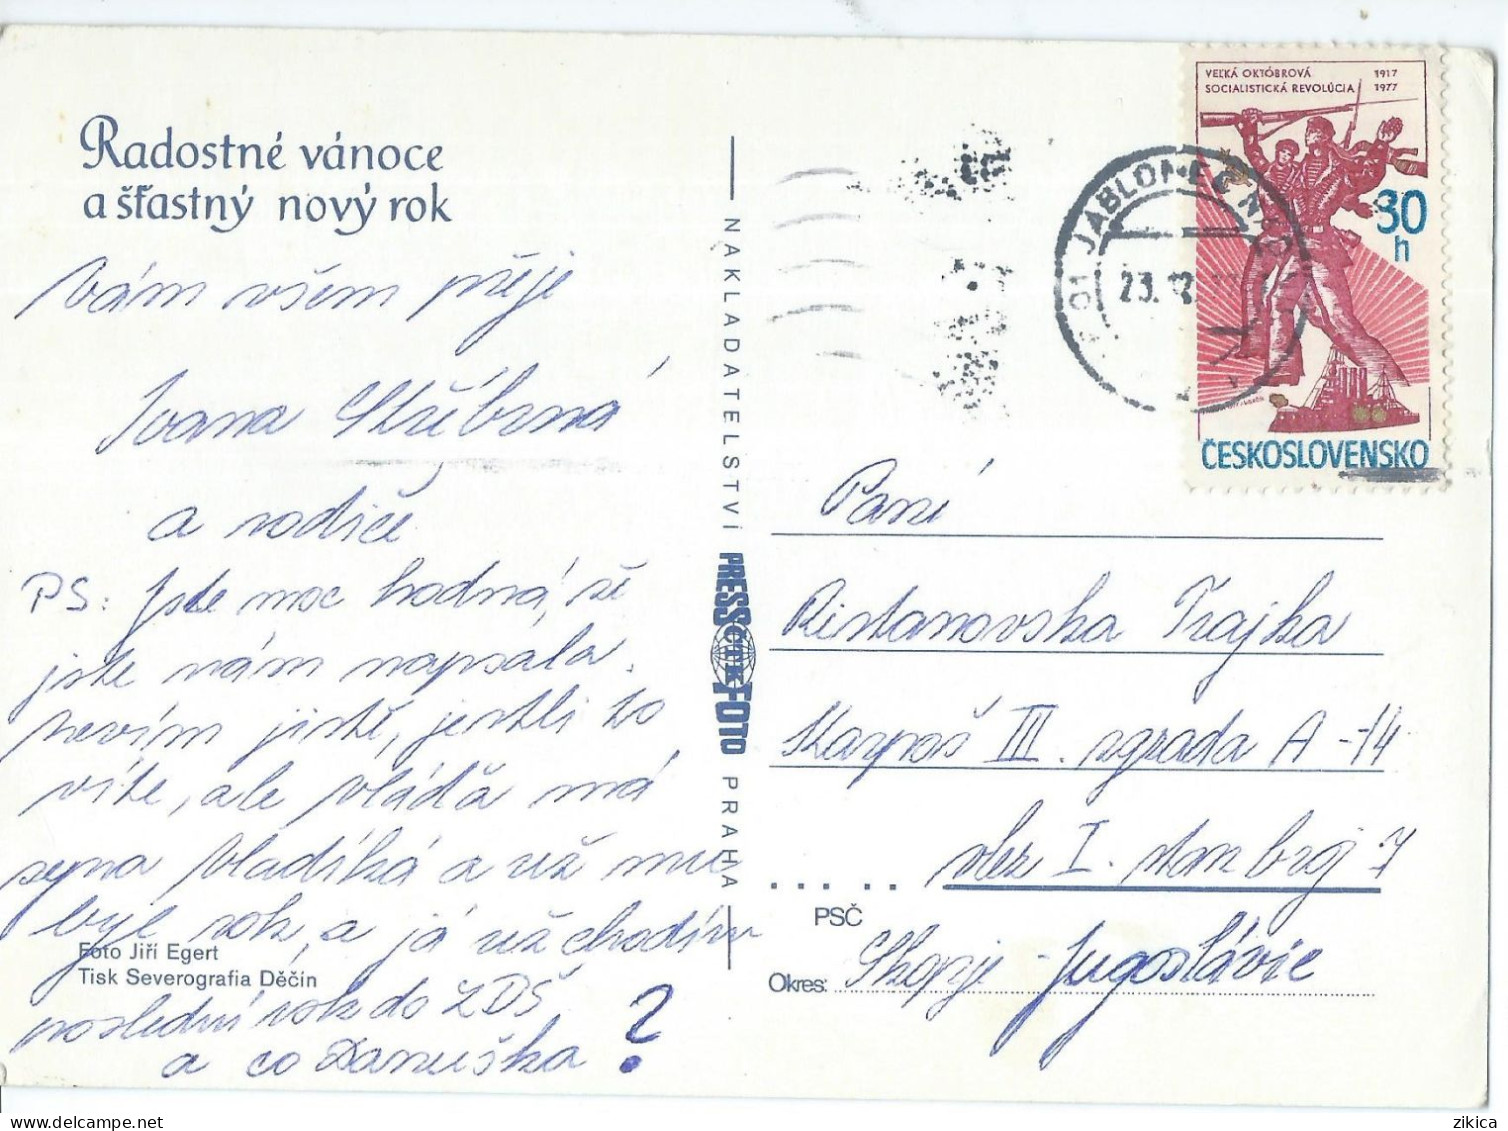 Radostné vánoce
a šťastný nový rok
Vám všem přeje
Ivana Stříbrná
a rodiče
PS: Jste moc hodná, že
jste nám napsala.
nevím jistě, jestli to
víte, ale Vláďa má
syna Vladíka a už mu
byl rok, a já už chodím
poslední rok do ZDŠ
a co Danuška?
Foto Jiří Egert
Tisk Severografia Děčín
NAKLADATELSTVÍ PRESSFOTO PRAHA
ČTK
VEĽKÁ OKTÓBROVÁ 1917
SOCIALISTICKÁ REVOLÚCIA 1977
30
h
ČESKOSLOVENSKO
01 JABLONEC N.
23. 12.
Paní
Ristanovska Trajka
Karpoš III. zgrada A-14
vlez I. stan broj 7
PSČ
Okres: Skopje - Jugoslávie
zikica